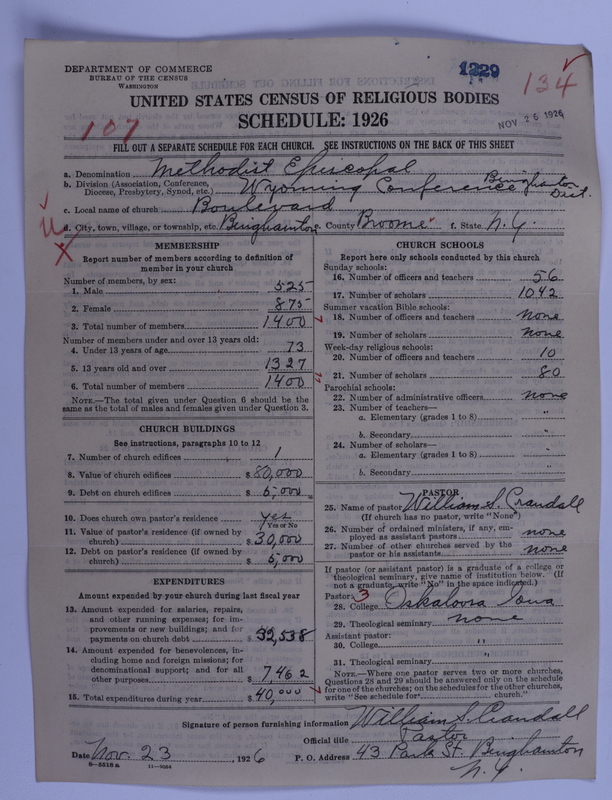 DEPARTMENT OF COMMERCE
BUREAU OF THE CENSUS
WASHINGTON
1229
134
UNITED STATES CENSUS OF RELIGIOUS BODIES
SCHEDULE: 1926
NOV 26 1926
107
FILL OUT A SEPARATE SCHEDULE FOR EACH CHURCH. SEE INSTRUCTIONS ON THE BACK OF THIS SHEET
a. Denomination Methodist Episcopal
b. Division (Association, Conference, Diocese, Presbytery, Synod, etc.) Wyoming Conference Binghamton Dist.
c. Local name of church Boulevard
d. City, town, village, or township, etc. Binghamton e. County Broome f. State N.Y.
MEMBERSHIP
Report number of members according to definition of
member in your church
Number of members, by sex:
1. Male 525
2. Female 875
3. Total number of members 1400
Number of members under and over 13 years old:
4. Under 13 years of age 73
5. 13 years old and over 1327
6. Total number of members 1400
NOTE.—The total given under Question 6 should be the
same as the total of males and females given under Question 3.
CHURCH BUILDINGS
See instructions, paragraphs 10 to 12
7. Number of church edifices 1
8. Value of church edifices $ 80,000
9. Debt on church edifices $ 6,000
10. Does church own pastor's residence yes
Yes or No
11. Value of pastor's residence (if owned by
church) $ 30,000
12. Debt on pastor's residence (if owned by
church) $ 5,000
EXPENDITURES
Amount expended by your church during last fiscal year
13. Amount expended for salaries, repairs,
and other running expenses; for im-
provements or new buildings; and for
payments on church debt $ 32,538
14. Amount expended for benevolences, in-
cluding home and foreign missions; for
denominational support; and for all
other purposes $ 7,462
15. Total expenditures during year $ 40,000
CHURCH SCHOOLS
Report here only schools conducted by this church
Sunday schools:
16. Number of officers and teachers 56
17. Number of scholars 1042
Summer vacation Bible schools:
18. Number of officers and teachers none
19. Number of scholars none
Week-day religious schools:
20. Number of officers and teachers 10
21. Number of scholars 80
Parochial schools:
22. Number of administrative officers none
23. Number of teachers—
a. Elementary (grades 1 to 8) "
b. Secondary "
24. Number of scholars—
a. Elementary (grades 1 to 8) "
b. Secondary "
PASTOR
25. Name of pastor William S. Crandall
(If church has no pastor, write "None")
26. Number of ordained ministers, if any, em-
ployed as assistant pastors none
27. Number of other churches served by the
pastor or his assistants none
If pastor (or assistant pastor) is a graduate of a college or
theological seminary, give name of institution below. (If
not a graduate, write "No" in the space indicated.)
Pastor: 3
28. College Oskaloosa Iowa
29. Theological seminary none
Assistant pastor:
30. College "
31. Theological seminary "
NOTE.—Where one pastor serves two or more churches,
Questions 28 and 29 should be answered only on the schedule
for one of the churches; on the schedules for the other churches,
write "See schedule for church."
Signature of person furnishing information William S. Crandall
Official title Pastor
Date Nov. 23, 1926 P. O. Address 43 Park St. Binghamton
N.Y.
8-5518a 11-9054